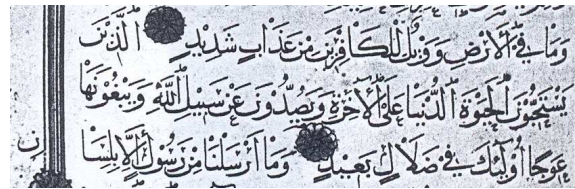 وَمَا فِي ٱلْأَرْضِ وَوَيْلٌ لِلْكَافِرِينَ مِنْ عَذَابٍ شَدِيدٍ ٱلَّذِينَ
يَسْتَحِبُّونَ ٱلْحَيَوٰةَ ٱلدُّنْيَا عَلَى ٱلْأٰخِرَةِ وَيَصُدُّونَ عَنْ سَبِيلِ ٱللَّهِ وَيَبْغُونَهَا
عِوَجًا أُولَٰئِكَ فِي ضَلَالٍ بَعِيدٍ وَمَا أَرْسَلْنَا مِنْ رَسُولٍ إِلَّا بِلِسَا
ن